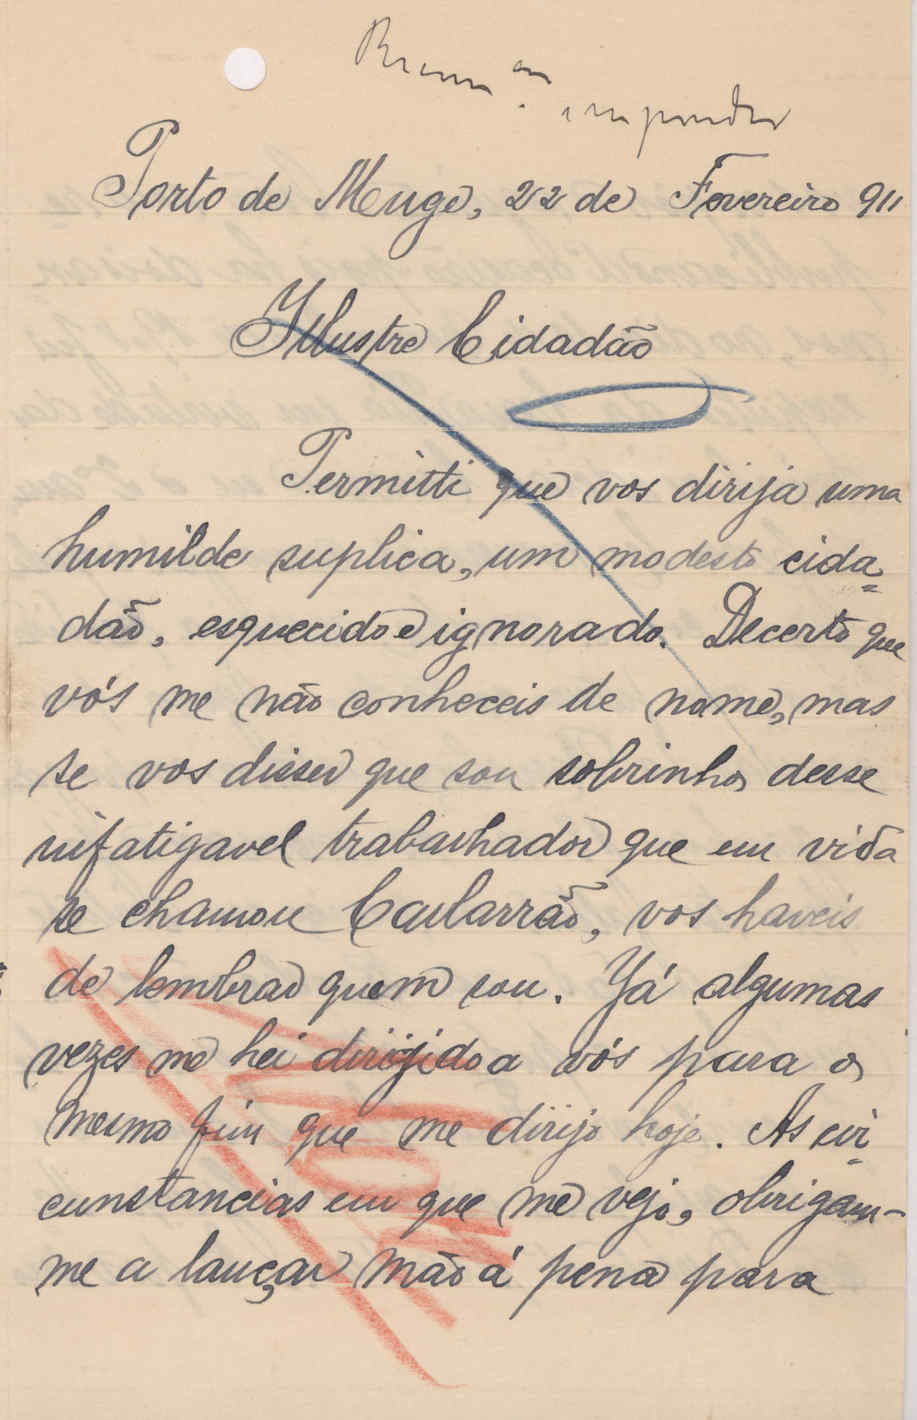 Porto de Muge, 22 de Fevereiro 911
Illustre Cidadão
Permitti que vos dirija uma
humilde suplica, um modesto cida=
dão, esquecido e ignorado. Decerto que
vós me não conheceis de nome, mas
se vos disser que sou sobrinho, desse
infatigavel trabalhador que em vida
se chamou, vos haveis
de lembrar quem sou. Yá algumas
vezes me hei dirigido a vós para o
mesmo fim que me dirijo hoje. As cir=
cunstancias em que me vejo, obrigam-
me a lançar mão á pena para